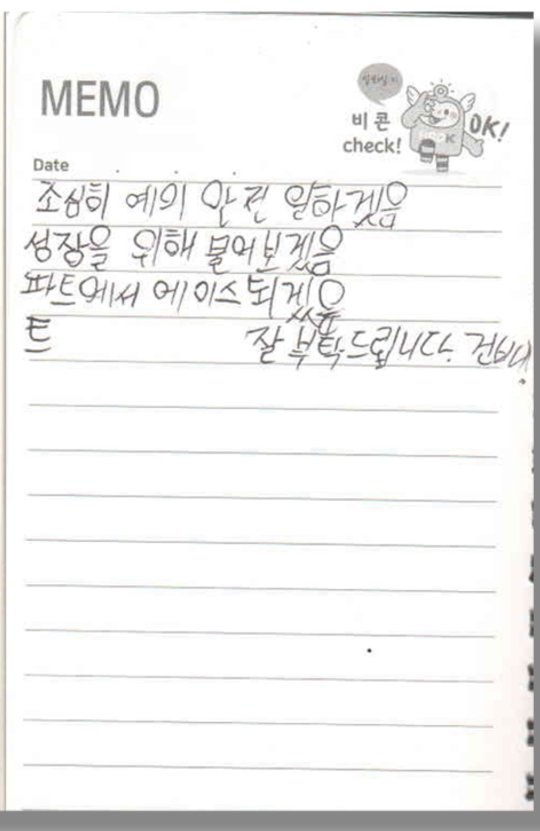 MEMO
비콘
check!
OK!
Date
조심히 예의 안전 일하겠음
성장을 위해 물어보겠음
파트에서 에이스되겠음
트 잘 부탁드립니다. 건배!